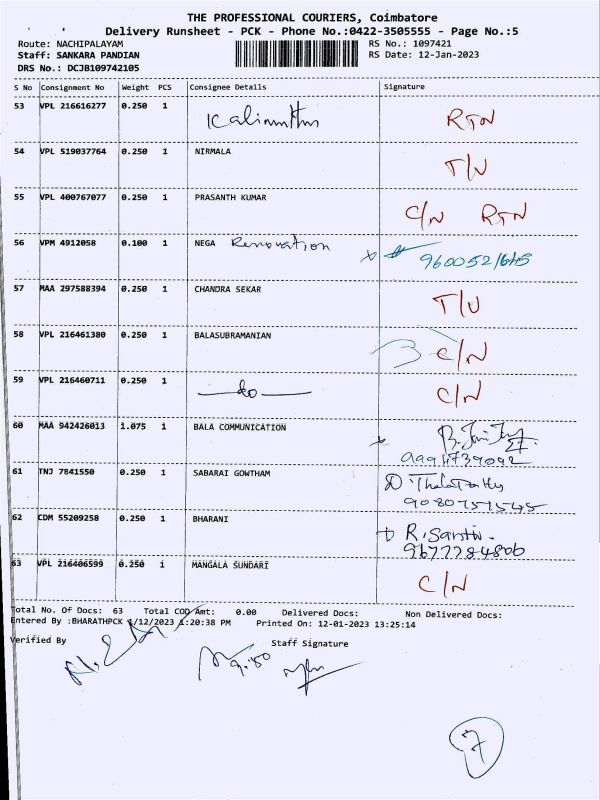 THE PROFESSIONAL COURIERS, Coimbatore
Delivery Runsheet - PCK - Phone No.:0422-3505555 - Page No.:5
Route: NACHIPALAYAM RS No.: 1097421
Staff: SANKARA PANDIAN RS Date: 12-Jan-2023
DRS No.: DCJB109742105
S No Consignment No Weight PCS Consignee Details Signature
53 VPL 216616277 0.250 1 RTN
54 VPL 519037764 0.250 1 NIRMALA T/N
55 VPL 400767077 0.250 1 PRASANTH KUMAR C/N RTN
56 VPM 4912058 0.100 1 NEGA Renovation
57 MAA 297588394 0.250 1 CHANDRA SEKAR
58 VPL 216461380 0.250 1 BALASUBRAMANIAN C/N
59 VPL 216460711 0.250 1 do C/N
60 MAA 942426013 1.075 1 BALA COMMUNICATION
61 TNJ 7841550 0.250 1 SABARAI GOWTHAM
9080751545
62 CDM 55209258 0.250 1 BHARANI
9677284806
63 VPL 216406599 0.250 1 MANGALA SUNDARI C/N
Total No. Of Docs: 63 Total COD Amt: 0.00 Delivered Docs: Non Delivered Docs:
Entered By :BHARATHPCK 1/12/2023 1:20:38 PM Printed On: 12-01-2023 13:25:14
Verified By Staff Signature
7